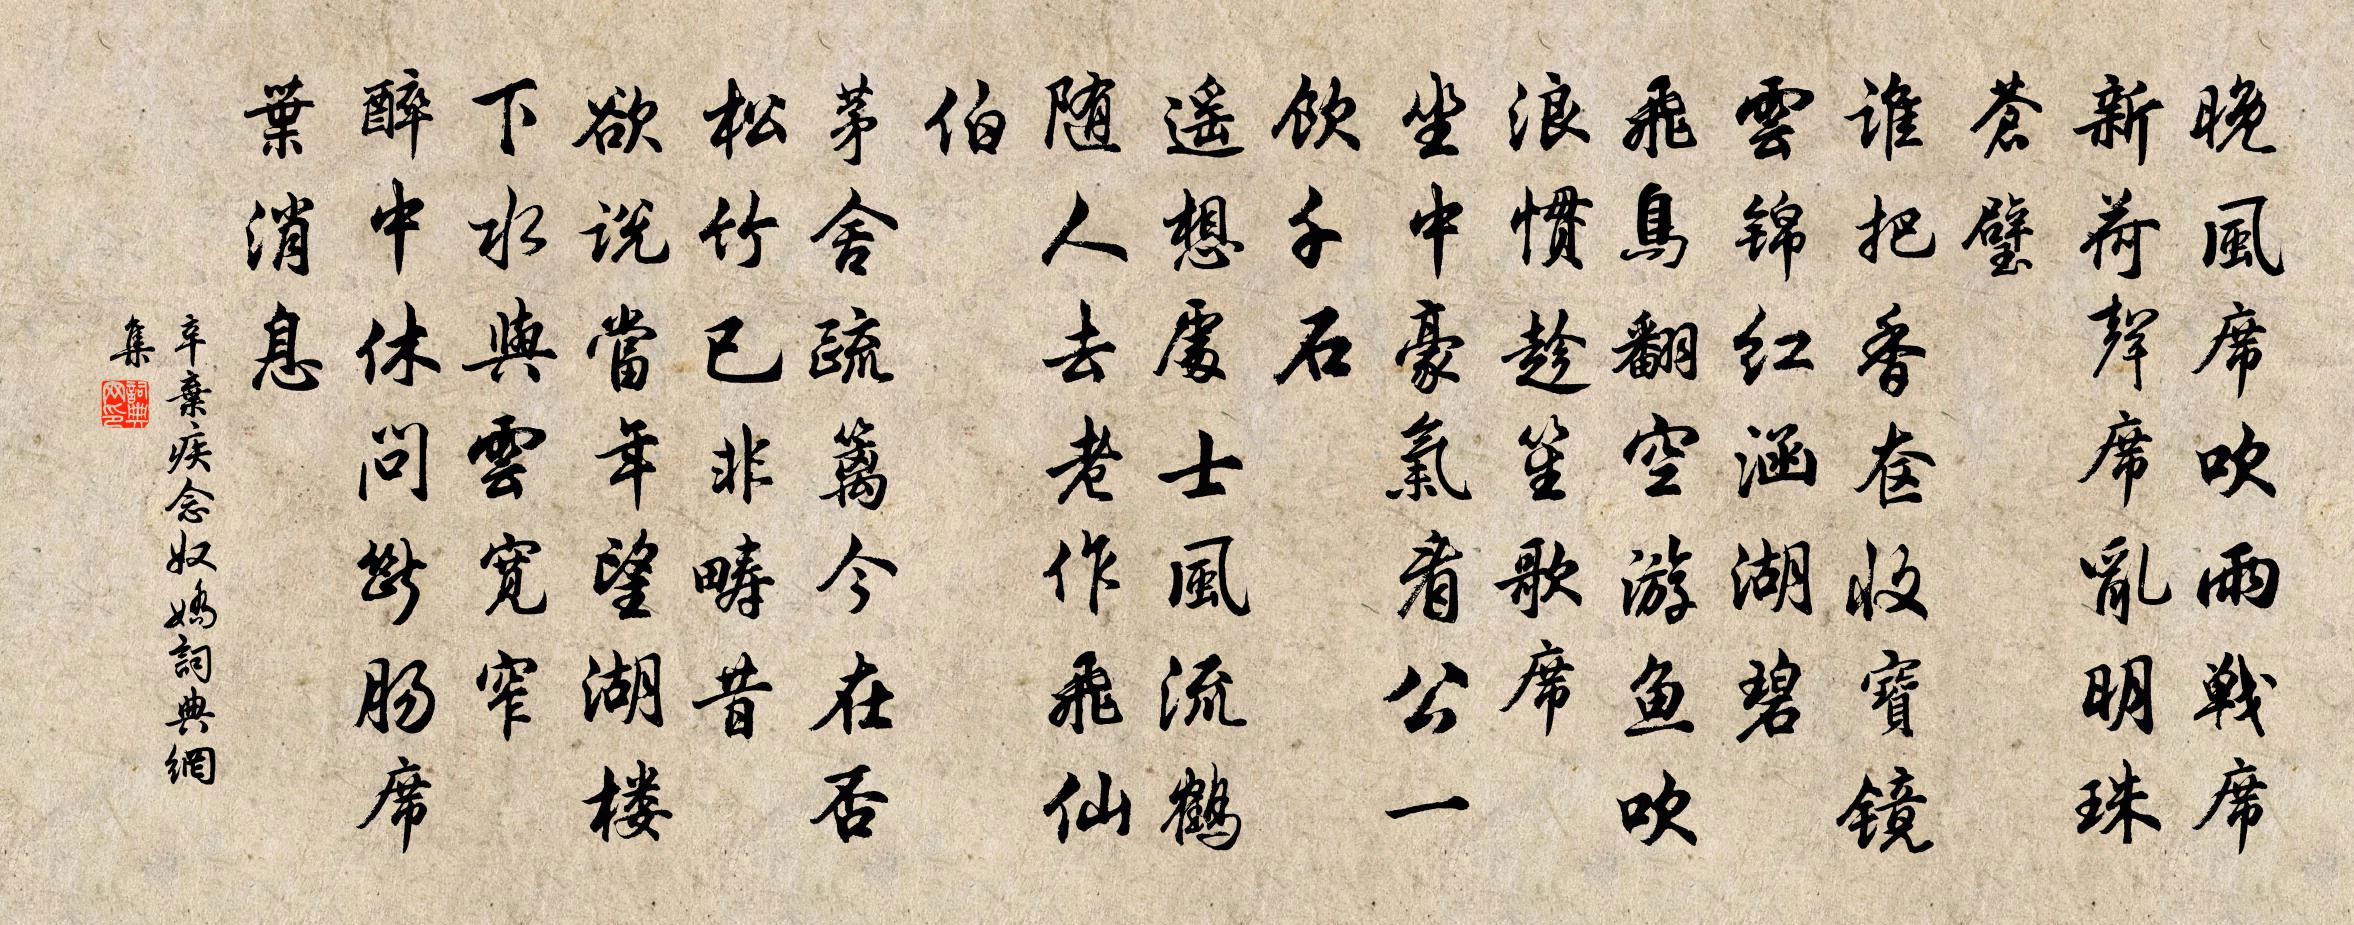 晚風席吹雨戰席
新荷聲席亂明珠
蒼璧
誰把香奩收寶鏡
雲錦红涵湖碧
飛鳥翻空游鱼吹
浪慣趁笙歌席
坐中豪氣看公一
飲千石
遥想處士風流鶴
随人去老作飛仙
伯
茅舍疏籬今在否
松竹已非疇昔
欲说當年望湖楼
下水與雲寬窄
醉中休問斷肠席
葉消息
辛棄疾念奴嬌詞典網
集
詞典网印